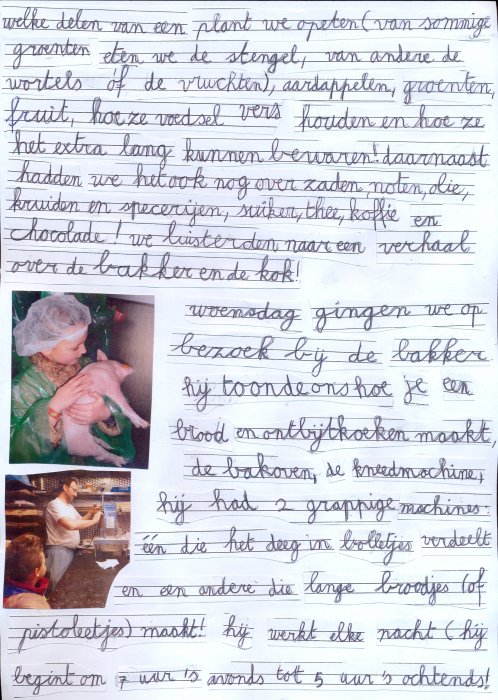 welke delen van een plant we opeten (van sommige
groenten eten we de stengel, van andere de
wortels of de vruchten), aardappelen, groenten,
fruit, hoe ze voedsel vers houden en hoe ze
het extra lang kunnen bewaren! daarnaast
hadden we het ook nog over zaden, noten, olie,
kruiden en specerijen, suiker, thee, koffie en
chocolade! we luisterden naar een verhaal
over de bakker en de kok!
woensdag gingen we op
bezoek bij de bakker
hij toonde ons hoe je een
brood en ontbijtkoeken maakt,
de bakoven, de kneedmachine,
hij had 2 grappige machines:
één die het deeg in bolletjes verdeelt
en een andere die lange broodjes (of
pistoleetjes) maakt! hij werkt elke nacht (hij
begint om 7 uur 's avonds tot 5 uur 's ochtends!